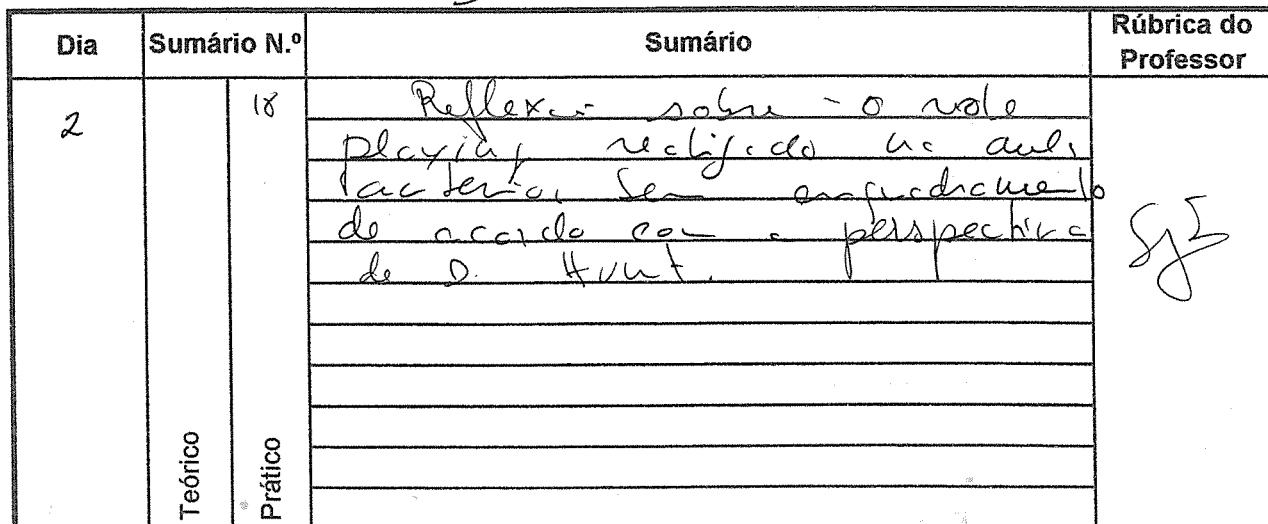 Dia Sumário N.º Sumário Rúbrica do Professor
2 18 Reflexão sobre o role
playing realizado na aula
anterior. Seu enquadramento
de acordo com a perspectiva
de D. Hunt.
Teórico
Prático